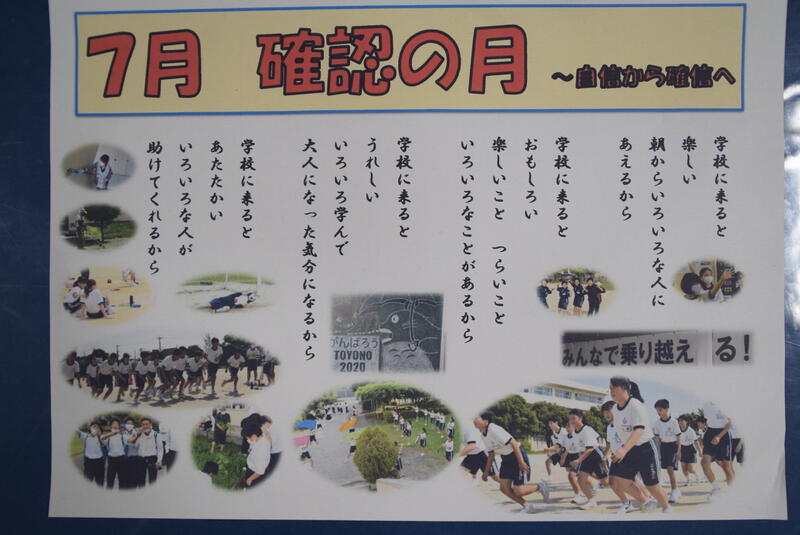 7月 確認の月 ～自信から確信へ
学校に来ると
楽しい
朝からいろいろな人に
あえるから
学校に来ると
おもしろい
楽しいこと つらいこと
いろいろなことがあるから
学校に来ると
うれしい
いろいろ学んで
大人になった気分になるから
学校に来ると
あたたかい
いろいろな人が
助けてくれるから
がんばろう
TOYONO
2020
みんなで乗り越え る!